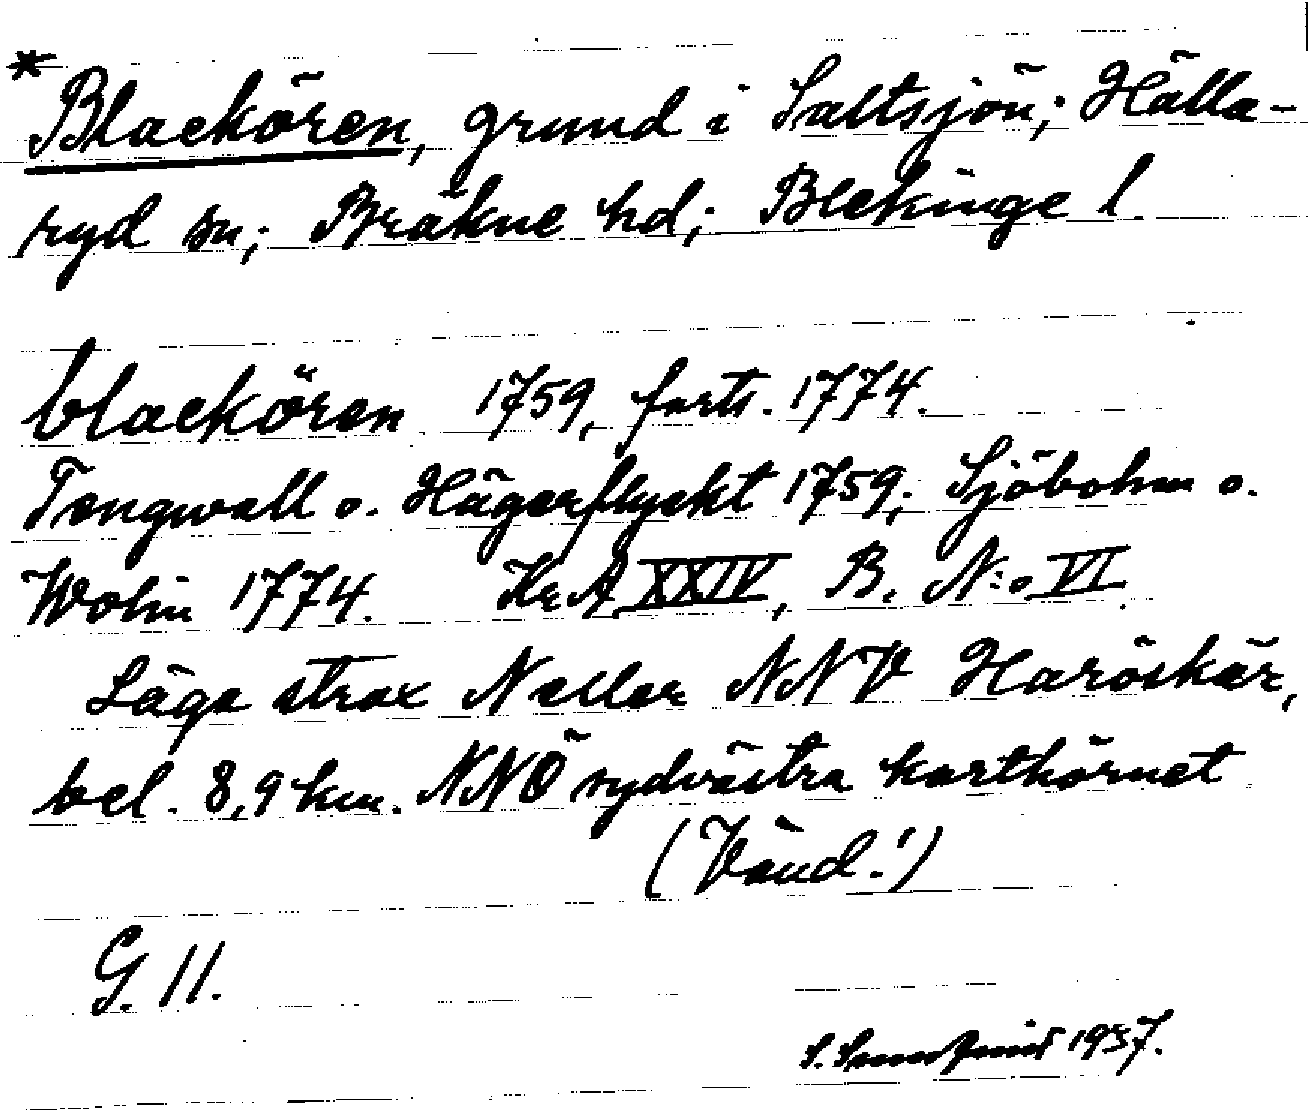 *Blackören, grund i Saltsjön; Hälla-
ryd sn; Bräkne hd; Blekinge l.
blackören 1759, forts. 1774.
Tengwall o. Hägerflyckt 1759; Sjöbohm o.
Wolin 1774. KrA XXIV, B. N:o VI
Läge strax N eller NNV Haröskär,
bel. 8,9 km. NNÖ sydvästra karthörnet
(Vänd!)
G. 11.
S. 1937.